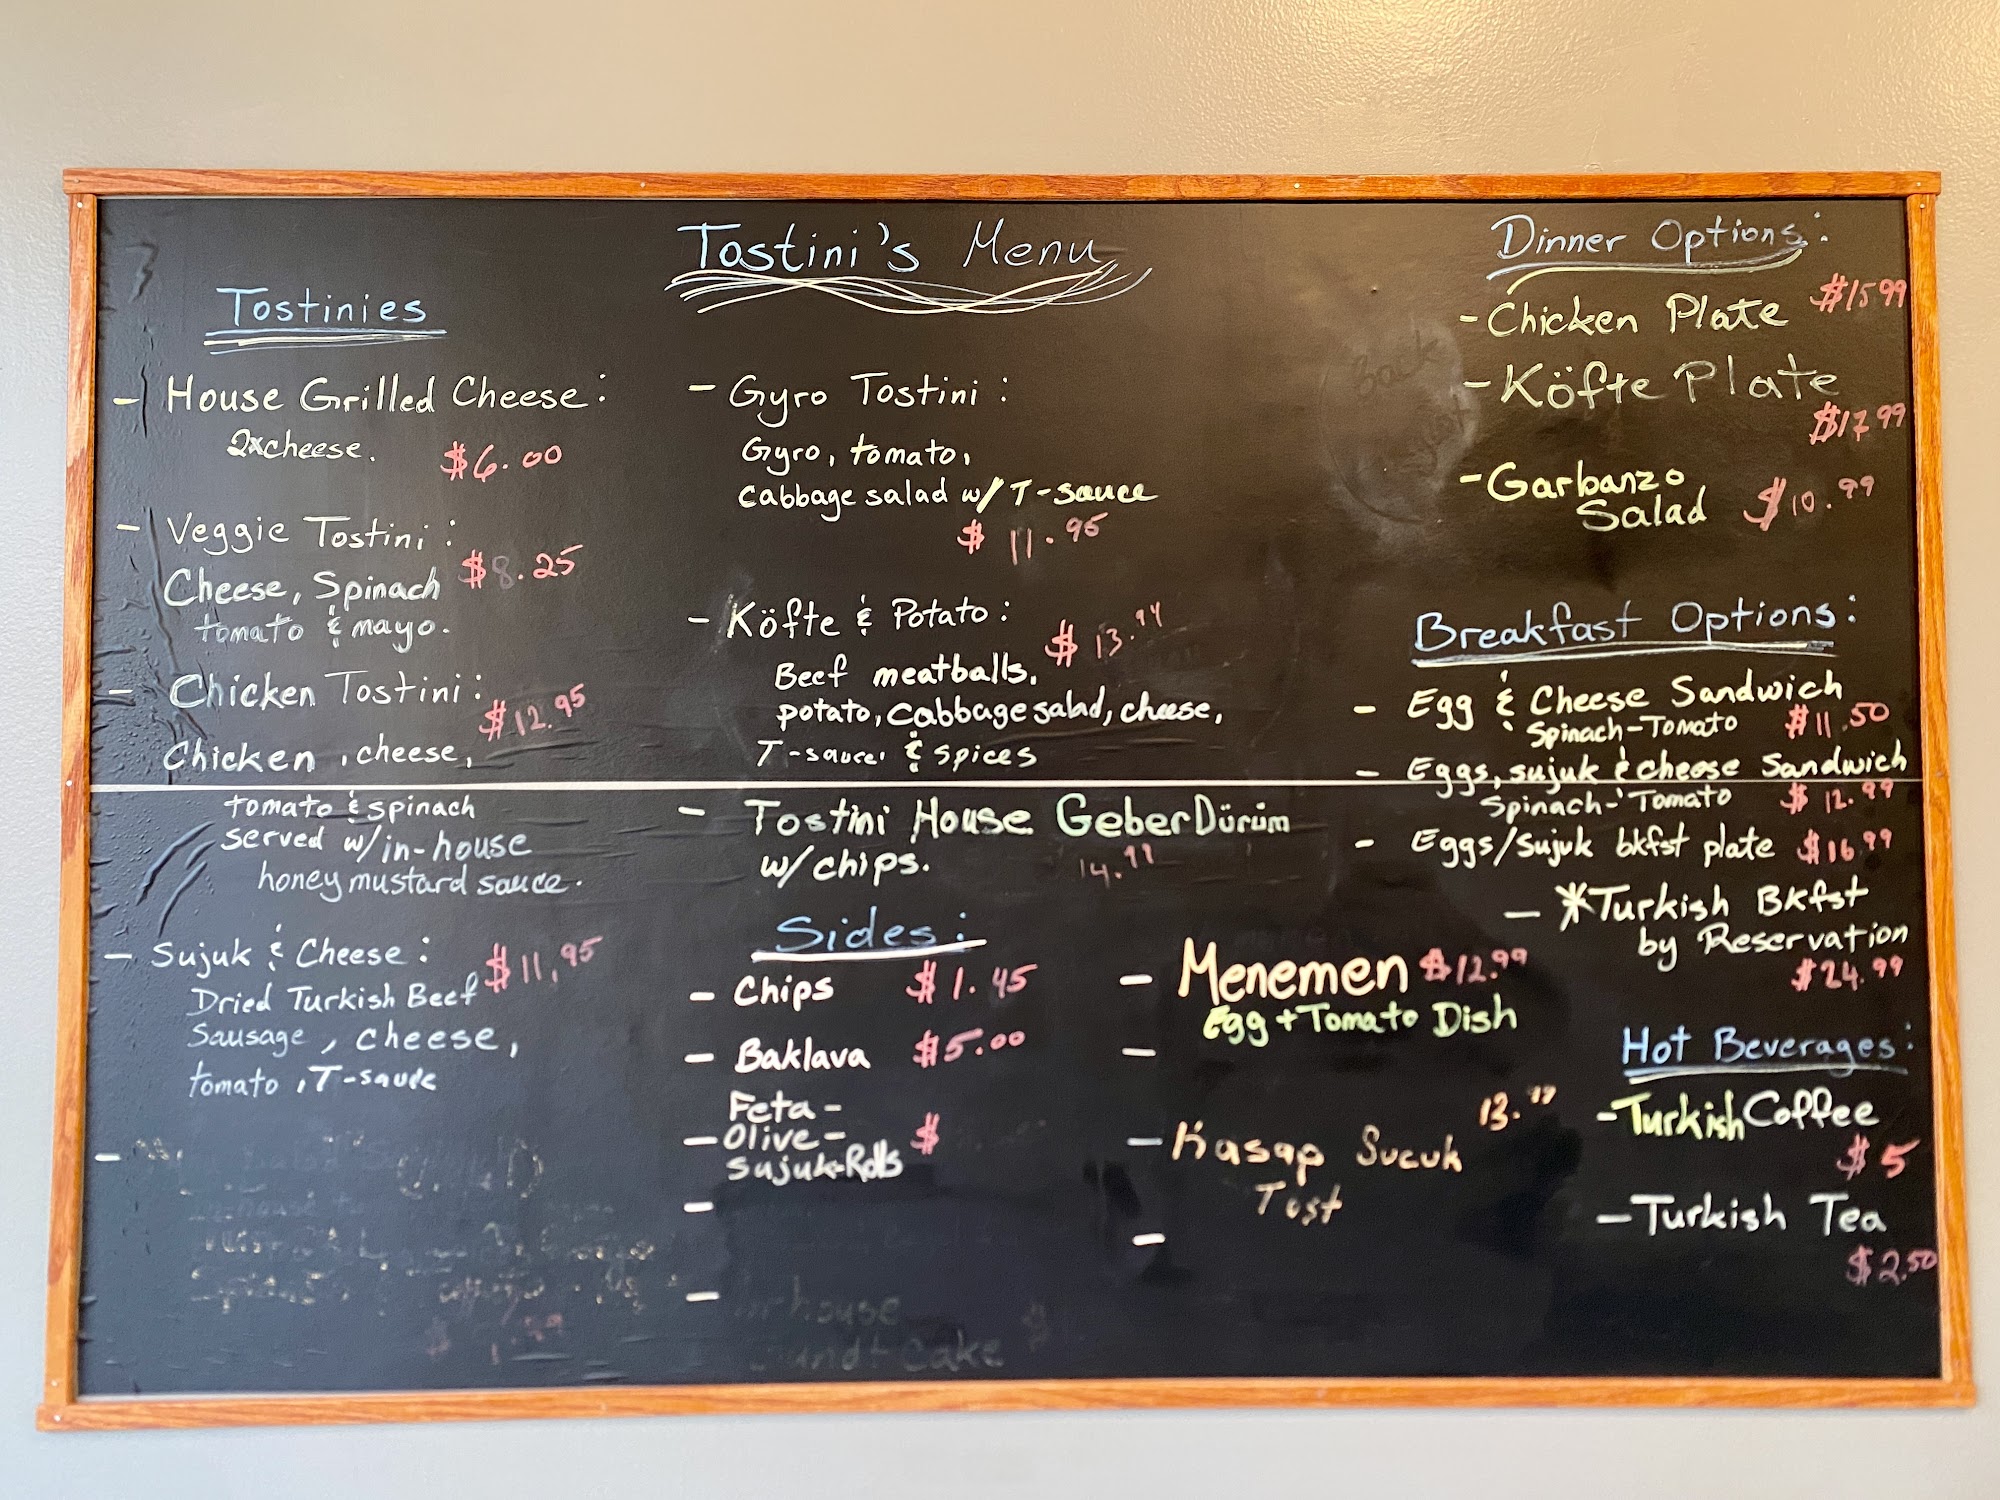 Tostini's Menu
Tostinies
- House Grilled Cheese:
2xcheese.
$6.00
- Veggie Tostini:
$8.25
Cheese, Spinach
tomato & mayo.
- Chicken Tostini:
$12.95
Chicken, cheese,
tomato & spinach
served w/in-house
honey mustard sauce.
- Sujuk & Cheese:
$11,95
Dried Turkish Beef
Sausage, cheese,
tomato, T-sauce
- Gyro Tostini:
Gyro, tomato,
cabbage salad w/ T-sauce
$11.95
- Köfte & Potato:
$13.
Beef meatballs,
potato, cabbage salad, cheese,
T-sauce, & spices
- Tostini House GeberDürüm
w/chips.
14.99
Sides:
- Chips $1.45
- Baklava $5.00
Feta-
- Olive- $
Sujuk-Rolls
-
-
house
Cake $
- Menemen $12.99
Egg + Tomato Dish
-
13.99
- Kasap Sucuk
Tost
-
Dinner Options:
- Chicken Plate $15 99
- Köfte Plate
$17 99
- Garbanzo
Salad $10.99
Breakfast Options:
- Egg & Cheese Sandwich
Spinach-Tomato $11.50
- Eggs, sujuk & cheese Sandwich
Spinach-Tomato $12.99
- Eggs/sujuk bkfst plate $16.99
- *Turkish Bkfst
by Reservation
$24.99
Hot Beverages:
- Turkish Coffee
$5
- Turkish Tea
$2.50